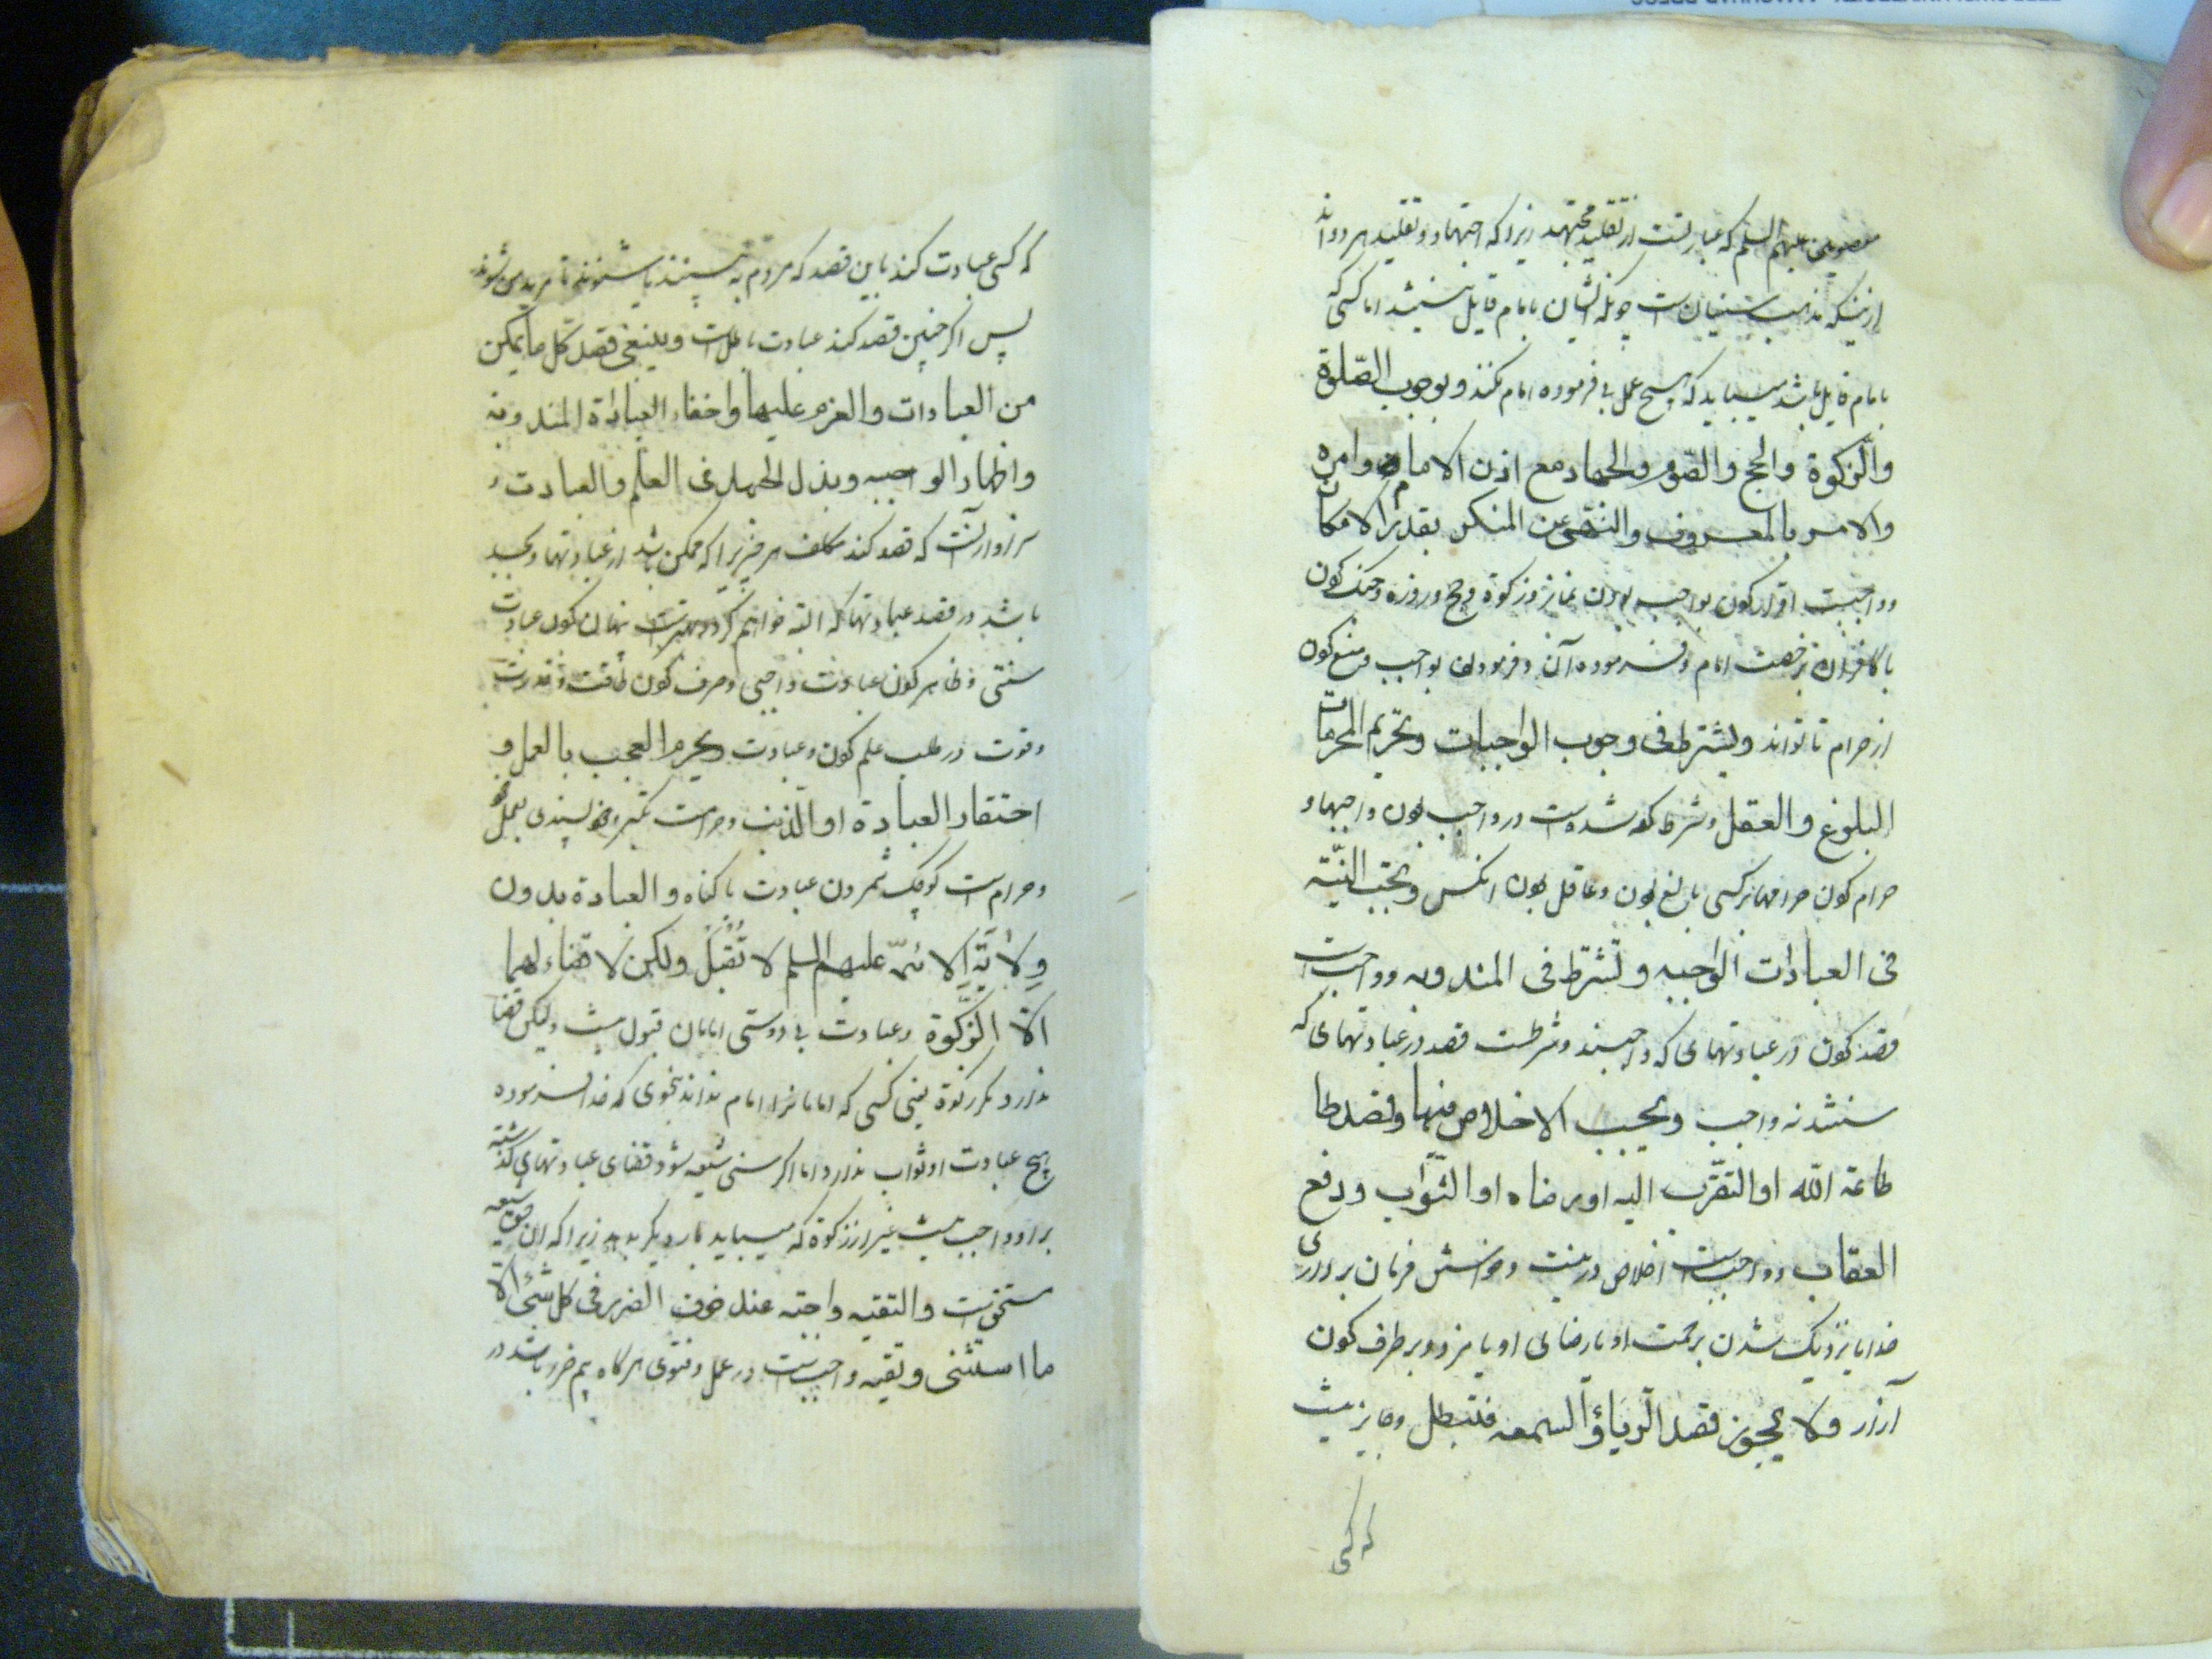 معصومین علیهم السلم که عبارتست از تقلید مجتهد زیرا که اجتهاد و تقلید هر دو اند
از اینکه مذهب سنیان است چونکه ایشان بامام قایل نیستند اما کسی که
بامام قایل باشد میباید که هیچ عمل بی فرموده امام نکند و بوجوب الصّلوة
والزکوة والحج والصّوم والجهاد مع اذن الامام وامره
والامر بالمعروف والنهی عن المنکر بقدر الامکان
و واجبست اقرار کردن بواجب بودن نماز و زکوة و حج و روزه و جنک کردن
با کافران برخصت امام و فرموده آن و فرمودن بواجب و منع کردن
از حرام تا تواند ویشترط فی وجوب الواجبات وتحریم المحرمات
البلوغ والعقل و شرط کرده شده است در واجب بودن واجبها و
حرام کردن حرامها بر کسی بالغ بودن و عاقل بودن انکس وتجب النیّة
فی العبادات الواجبه وتشترط فی المندوبه و واجبست
قصد کردن در عبادتهای که واجبند و شرطست قصد در عبادتهای که
سنتند نه واجب ویجب الاخلاص فیها وقصد طا
طاعة الله او التقرّب الیه او رضاه او الثّواب ودفع
العقاب و واجبست اخلاص در نیت و خواستن فرمان برداری
خدا یا نزدیک شدن برحمت او یا رضای او یا مزد و برطرف کردن
آزار ولا یجوز قصد الریاء والسمعه فتبطل و جایز نیست
که کسی
که کسی عبادت کند باین قصد که مردم به بینند یا بشنوند تا مرید من شوند
پس اکر چنین قصد کند عبادت باطل است وینبغی قصد کلّ ما یمکن
من العبادات والعزم علیها واخفاء العبادة المندوبة
واظهار الواجبیه وبذل الجهد فی العلم والعبادت و
سزاوار آنست که قصد کند مکلف هر چیزیرا که ممکن باشد از عبادتها و بجد
باشد در قصد عبادتها که البته خواهم کرد و بهترست نهان کردن عبادت
سنتی و ظاهر کردن عبادت واجبی و صرف کردن طاقت و قدرت
و قوت در طلب علم کردن و عبادت ویحرم العجب بالعمل و
احتقار العبادة او الذنب و حرامست تکبر و خود پسندی بعمل خود
و حرام است کوچک شمردن عبادت یا کناه والعبادة بدون
وِلایَةِ الائمّة علیهم السلم لا تُقْبَلُ ولکن لا قضاء لهما
الاّ الزّکوة و عبادت بی دوستی امامان قبول نیست ولیکن قضا
ندارد مکر زکوة یعنی کسی که امامانرا امام نداند بنحوی که خدا فرموده
هیچ عبادت او ثواب ندارد اما اکر سنی شیعه شود قضای عبادتهای کذشته
بر او واجب نیست غیر از زکوة که میباید بار دیکر بدهد زیرا که ان حق شیعه
مستحق است والتقیه واجبه عند خوف الضرر فی کل شئ الا
ما استثنی و تقیه واجبست در عمل و فتوی هرکاه بیم ضرر باشد در